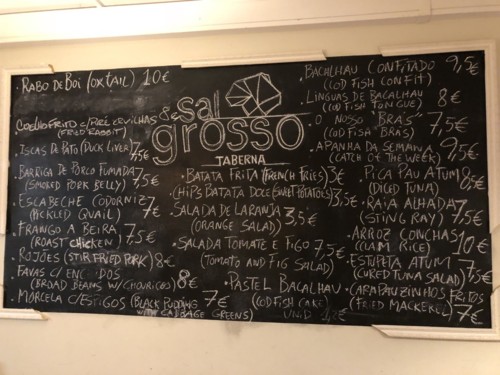 . RABO DE BOI (OXTAIL) 10€
COELHO FRITO C/PURÉ ERVILHAS 8€
(FRIED RABBIT)
. ISCAS DE PATO (DUCK LIVER) 7,5€
. BARRIGA DE PORCO FUMADA 7,5€
(SMOKED PORK BELLY)
. ESCABECHE CODORNIZ 7€
(PICKLED QUAIL)
. FRANGO A BEIRA 7,5€
(ROAST CHICKEN)
. ROJÕES (STIR FRIED PORK) 8€
. FAVAS C/ENCHIDOS
(BROAD BEANS W/CHOURIÇO) 8€
. MORCELA C/ESPIGOS (BLACK PUDDING 7€
WITH CABBAGE GREENS)
sal
grosso
TABERNA
. BATATA FRITA (FRENCH FRIES) 3€
. CHIPS BATATA DOCE (SWEET POTATOES) 3,5€
. SALADA DE LARANJA 3,5€
(ORANGE SALAD)
. SALADA TOMATE E FIGO 7,5€
(TOMATO AND FIG SALAD)
. PASTEL BACALHAU
(COD FISH CAKE)
UNID
. BACALHAU CONFITADO 9,5€
(COD FISH CONFIT)
. LINGUAS DE BACALHAU 8€
(COD FISH TONGUE)
. O NOSSO "BRÁS" 7,5€
(COD FISH "BRÁS")
. APANHA DA SEMANA 9,5€
(CATCH OF THE WEEK)
. PICA PAU ATUM 8,5€
(DICED TUNA)
. RAIA ALHADA 7,5€
(STING RAY)
. ARROZ CONCHAS 10€
(CLAM RICE)
. ESTUPETA ATUM 7,5€
(CURED TUNA SALAD)
. CARAPAUZINHOS FRITOS
(FRIED MACKEREL) 7€